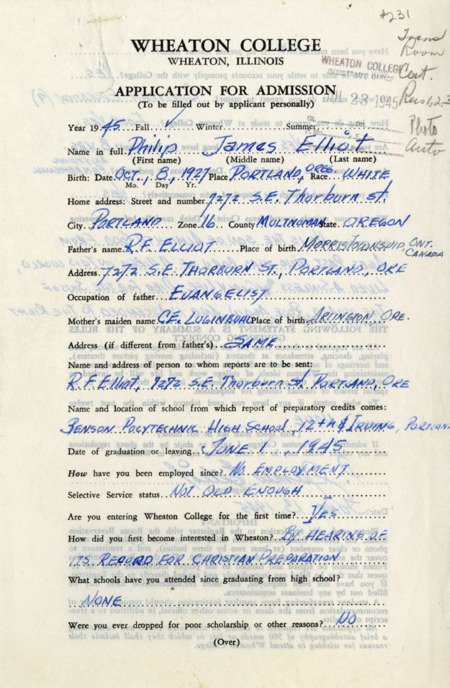 #231
Trans
Room
WHEATON COLLEGE
WHEATON, ILLINOIS
WHEATON COLLEGE
28 1945
Photo
APPLICATION FOR ADMISSION
(To be filled out by applicant personally)
Year 1945 Fall ✓ Winter Summer
Name in full Philip James Elliot
(First name) (Middle name) (Last name)
Birth: Date Oct., 8, 1927 Place PORTLAND, ORE. Race WHITE
Mo. Day Yr.
Home address: Street and number 7272 S.E. Thorburn St.
City PORTLAND Zone 16 County MULTNOMAH State OREGON
Father's name R.F. ELLIOT Place of birth ONT. CANADA
Address 7272 S.E. THORBURN ST., PORTLAND, ORE
Occupation of father EVANGELIST
Mother's maiden name C.E. LUGINBUHL Place of birth ARLINGTON, ORE.
Address (if different from father's) SAME
Name and address of person to whom reports are to be sent:
R.F. Elliot, 7272 S.E. Thorburn St. PORTLAND, ORE
Name and location of school from which report of preparatory credits comes:
BENSON POLYTECHNIC HIGH SCHOOL, 12TH & IRVING, PORTLAND
Date of graduation or leaving JUNE 1, 1945
How have you been employed since? NO EMPLOYMENT
Selective Service status NOT OLD ENOUGH
Are you entering Wheaton College for the first time? YES
How did you first become interested in Wheaton? BY HEARING OF
ITS RECORD FOR CHRISTIAN PREPARATION
What schools have you attended since graduating from high school?
NONE
Were you ever dropped for poor scholarship or other reasons? NO
(Over)